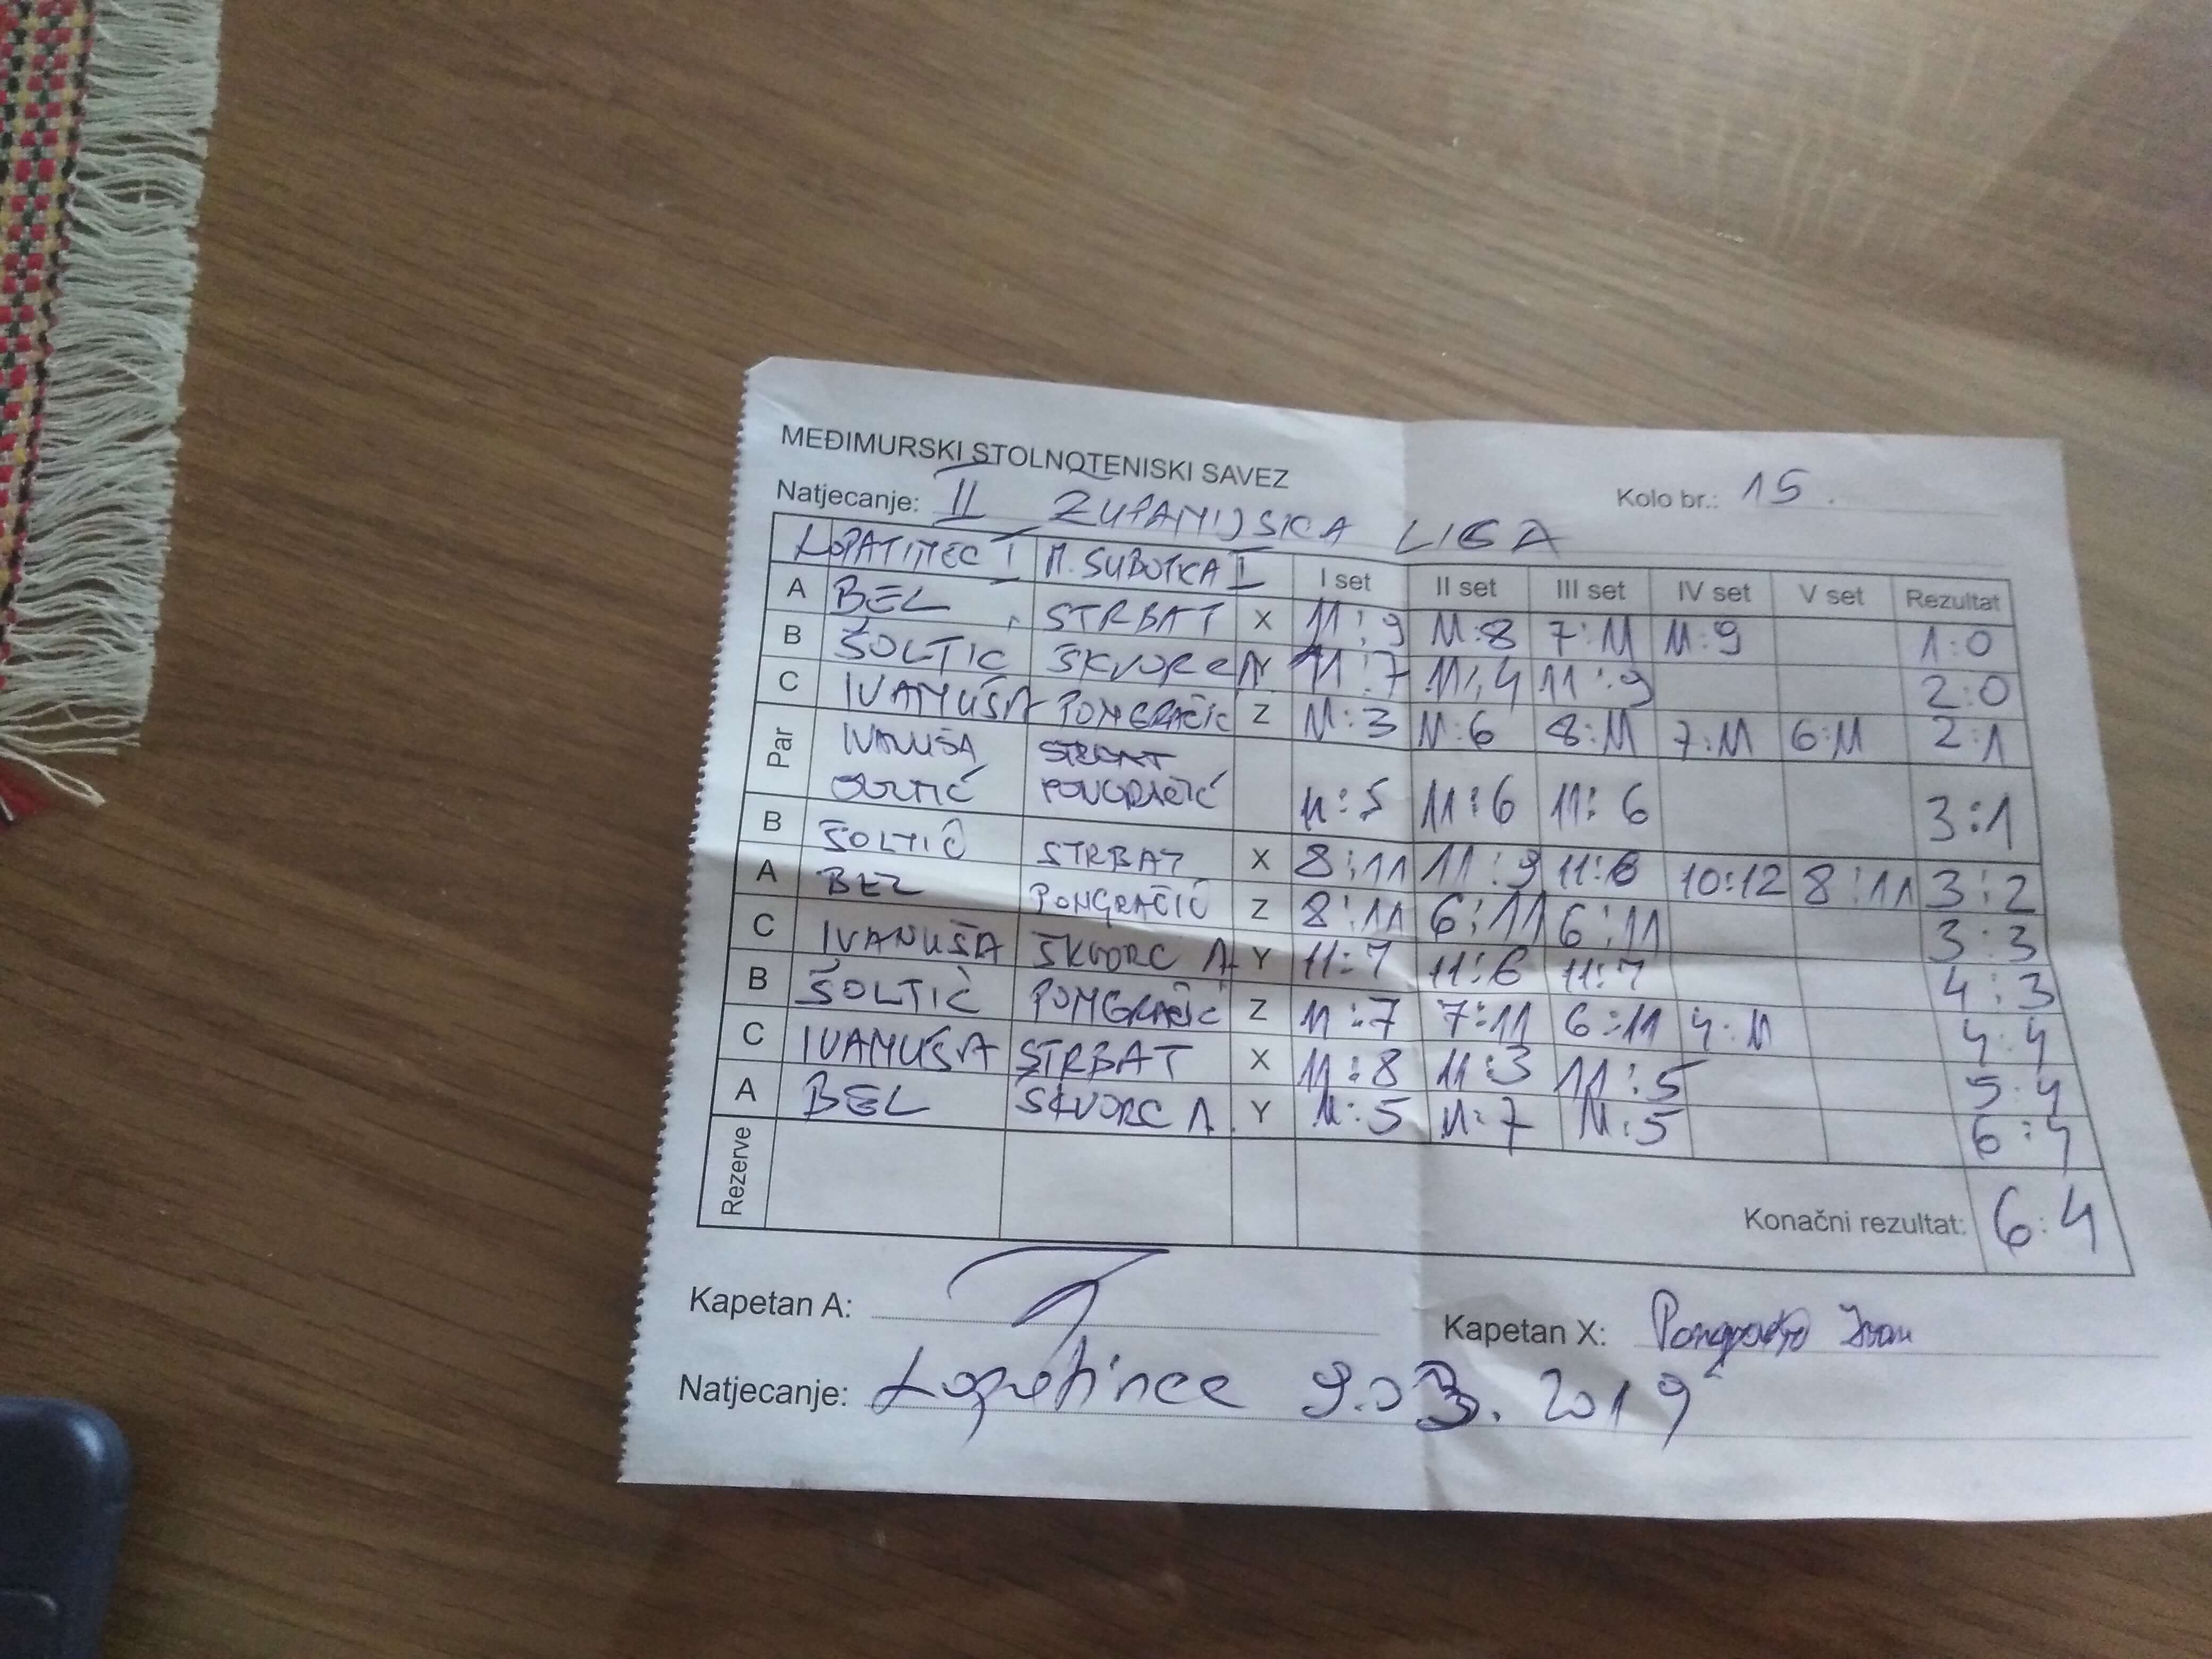 MEĐIMURSKI STOLNOTENISKI SAVEZ
Natjecanje: II ŽUPANIJSKA LIGA Kolo br.: 15.
LOPATINEC I M. SUBOTICA I I set II set III set IV set V set Rezultat
A BEL ŠTRBAT X 11:9 11:8 7:11 11:9 1:0
B ŠOLTIĆ ŠKVORC A Y 11:7 11:4 11:9 2:0
C IVANUŠA PONGRAČIĆ Z 11:3 11:6 8:11 7:11 6:11 2:1
Par IVANUŠA ŠTRBAT
ŠOLTIĆ PONGRAČIĆ 11:5 11:6 11:6 3:1
B ŠOLTIĆ ŠTRBAT X 8:11 11:9 11:8 10:12 8:11 3:2
A BEL PONGRAČIĆ Z 8:11 6:11 6:11 3:3
C IVANUŠA ŠKVORC A Y 11:7 11:6 11:7 4:3
B ŠOLTIĆ PONGRAČIĆ Z 11:7 7:11 6:11 4:11 4:4
C IVANUŠA ŠTRBAT X 11:8 11:3 11:5 5:4
A BEL ŠKVORC A. Y 11:5 11:7 11:5 6:4
Rezerve Konačni rezultat: 6:4
Kapetan A: Kapetan X: Pongračić Ivan
Natjecanje: Lopatinec 9.03.2019